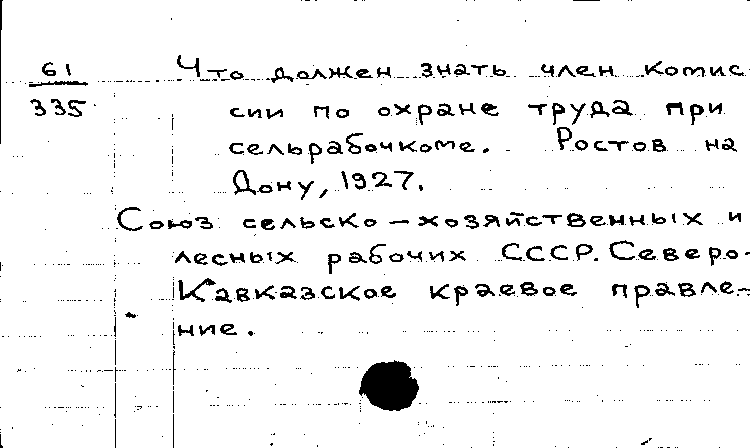 61
335
Что должен знать член комис-
сии по охране труда при
сельрабочкоме. Ростов на
Дону, 1927.
Союз сельско-хозяйственных и
лесных рабочих СССР. Северо-
Кавказское краевое правле-
ние.